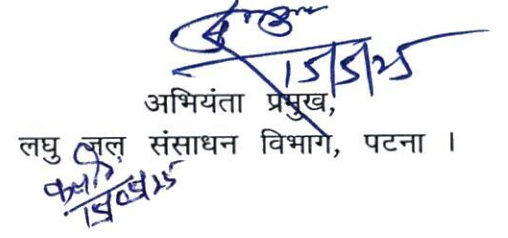 15/5/25
अभियंता प्रमुख,
लघु जल संसाधन विभाग, पटना ।